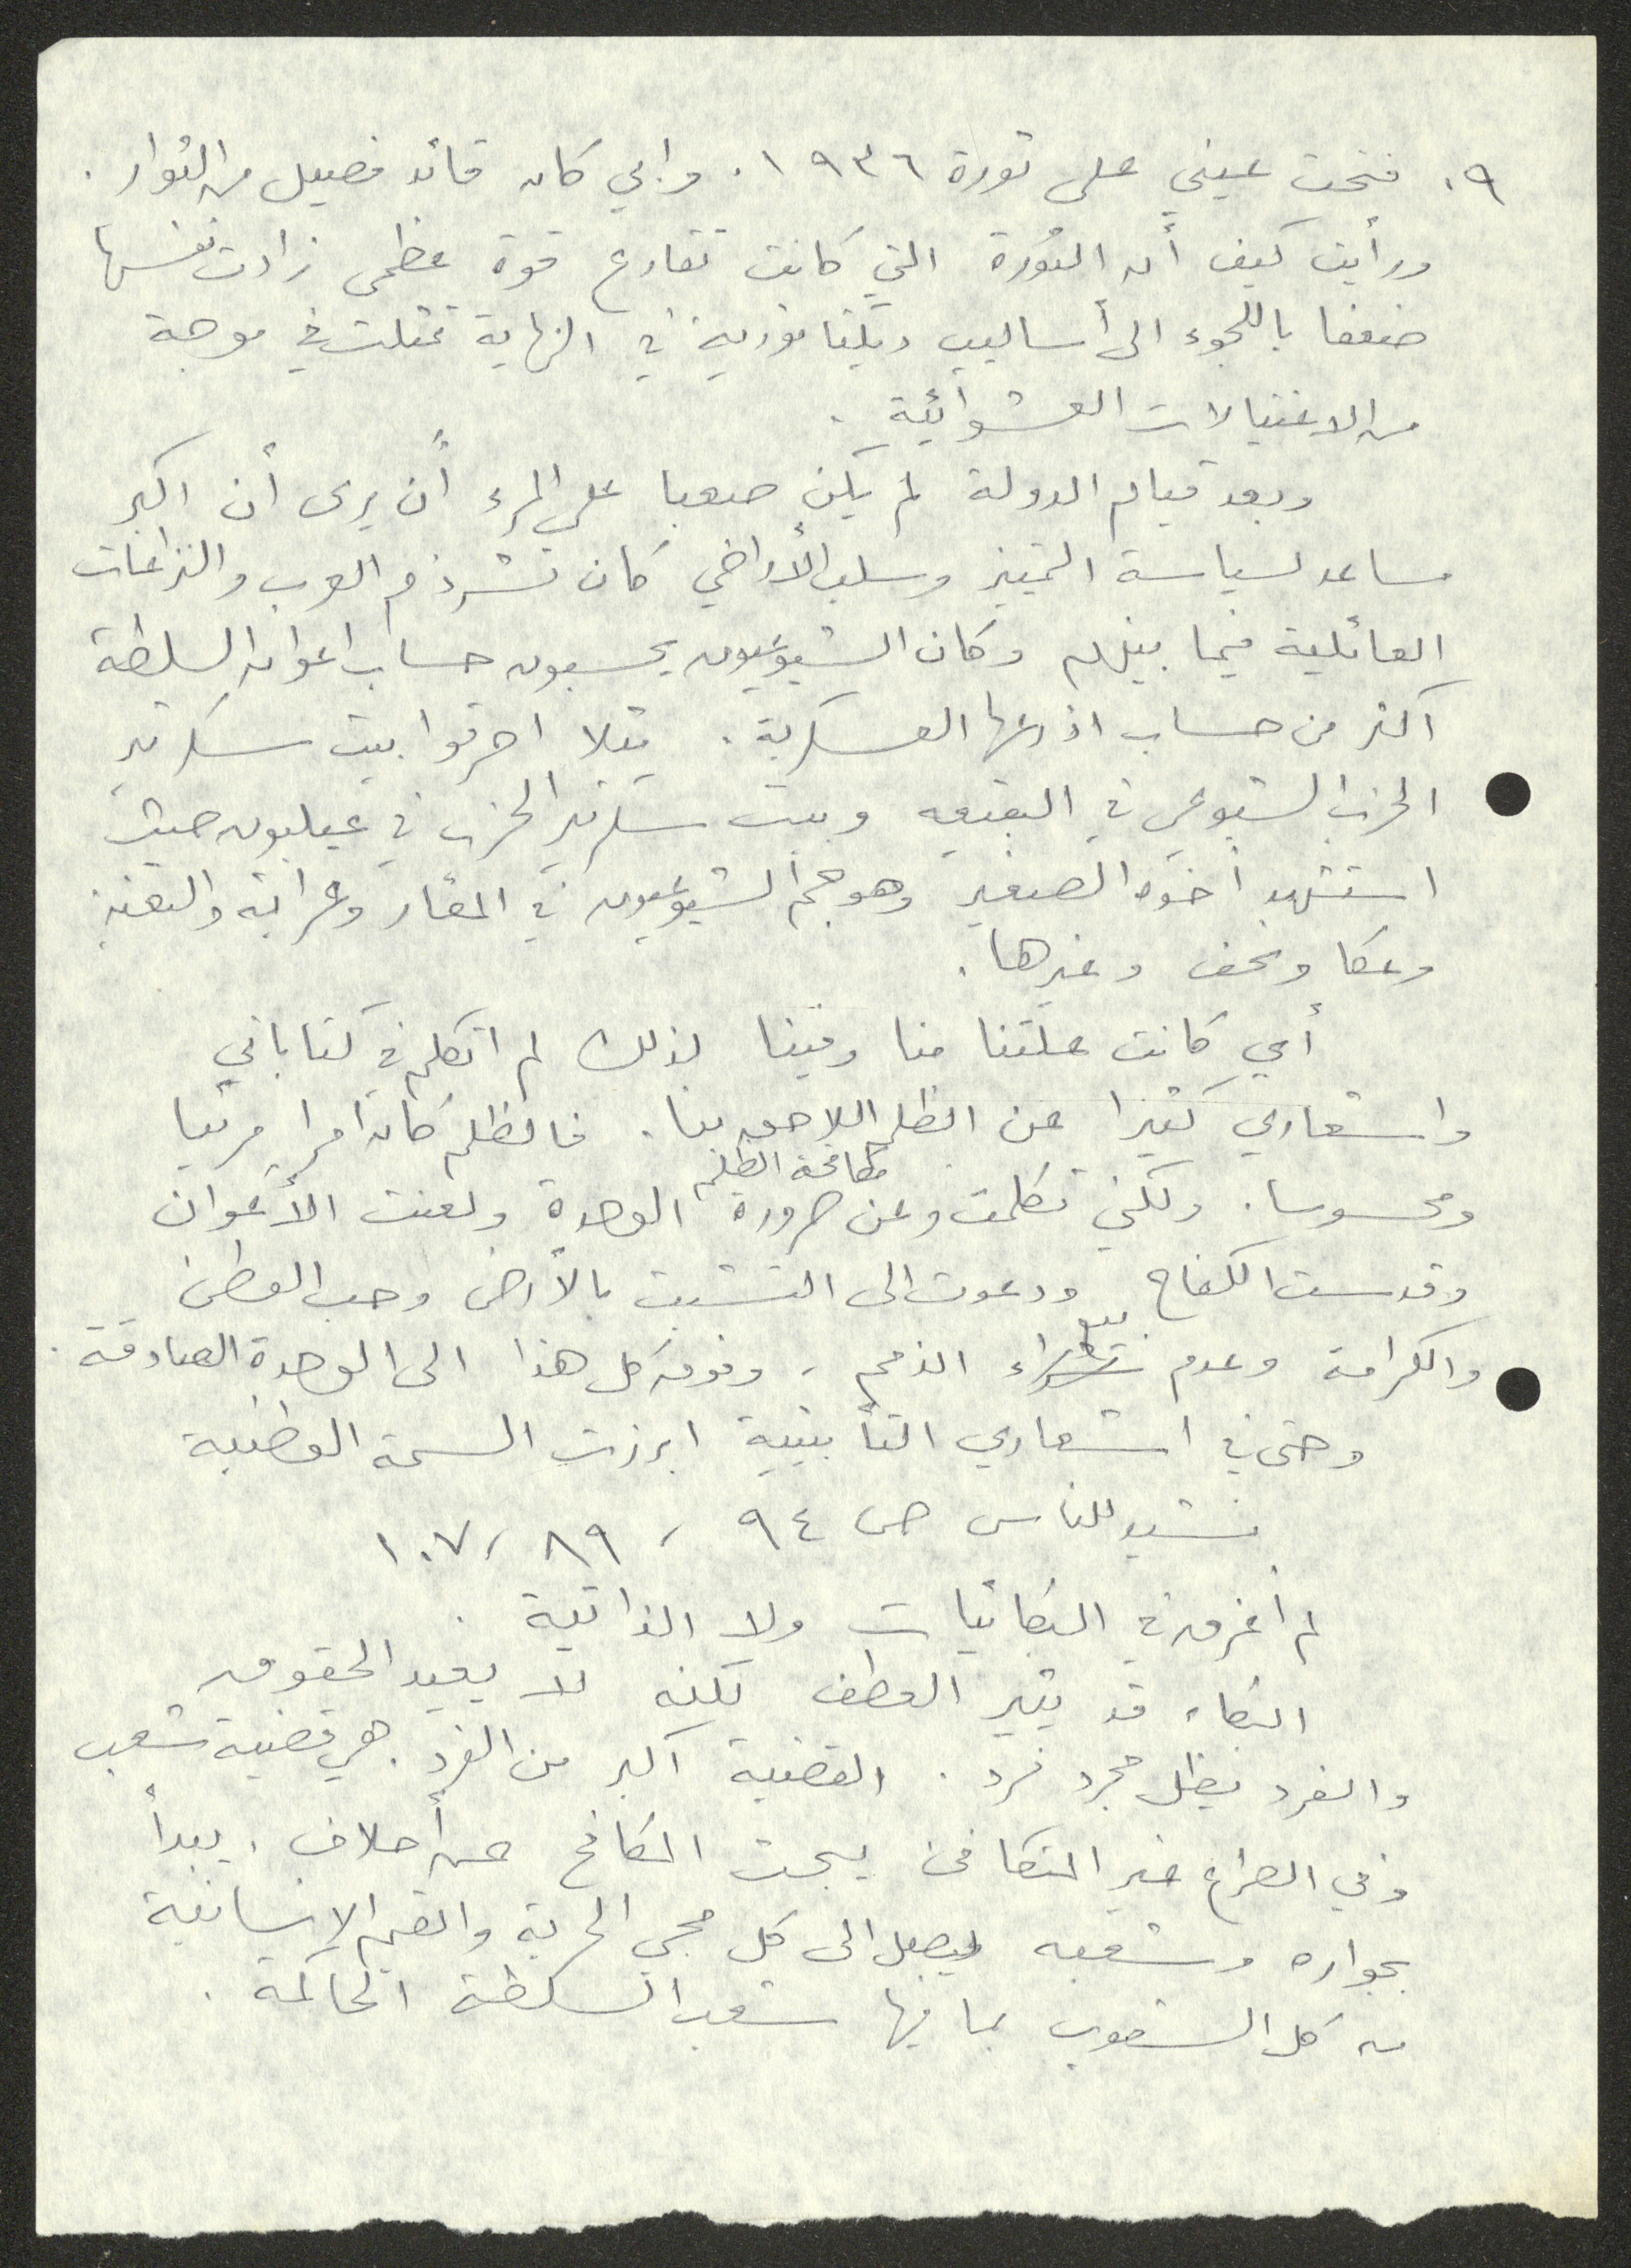 ٩. فتحت عيني على ثورة ١٩٣٦. وابي كان قائد فصيل من الثوار.
ورأيت كيف أن الثورة التي كانت تقارع قوة عظمى زادت نفسها
ضعفا باللجوء الى أساليب دكتاتورية في النهاية تمثلت في موجة
من الاغتيالات العشوائية.
وبعد قيام الدولة لم يكن صعبا على المرء أن يرى أن اكبر
مساعد لسياسة التمييز وسلب الأراضي كان تشرذم العرب والنزاعات
العائلية فيما بينهم وكان الشيوعيون يحسبون حساب اعوان السلطة
اكثر من حساب اذرعها العسكرية. مثلا احرقوا بيت سكرتير
الحزب الشيوعي في البقيعه وبيت سكرتير الحزب في عيلبون حيث
استشهد أخوه الصغير وهوجم الشيوعيون في المغار وعرابة والبقيعة
وعكا ونحف وغيرها.
أي كانت علتنا منا وفينا لذلك لم اتكلم في كتاباتي
واشعاري كثيرا عن الظلم اللاحق بنا. فالظلم كان امرا مرئيا
ومحسوسا. ولكني تكلمت وعن ضرورة مكافحة الظلم الوحدة ولعنت الأعوان
وقدست الكفاح ودعوت الى التشبث بالأرض وحب الوطن
والكرامة وعدم شراء بيع الذمم، وفوق كل هذا الى الوحدة الصادقة.
وحتى في اشعاري التأبينية ابرزت السمة الوطنية
نشيد للناس ص ٩٤، ٨٩، ١٠٧
لم أغرق في البكائيات ولا الذاتية.
البكاء قد يثير العطف لكنه لا يعيد الحقوق
والفرد يظل مجرد فرد. القضية اكبر من الفرد. هي قضية شعب
وفي الصراع غير المتكافئ يبحث المكافح عن أحلاف. يبدأ
بجواره وشعبه ليصل الى كل محبي الحرية والقيم الإنسانية
من كل الشعوب بما فيها شعب السلطة الحاكمة.